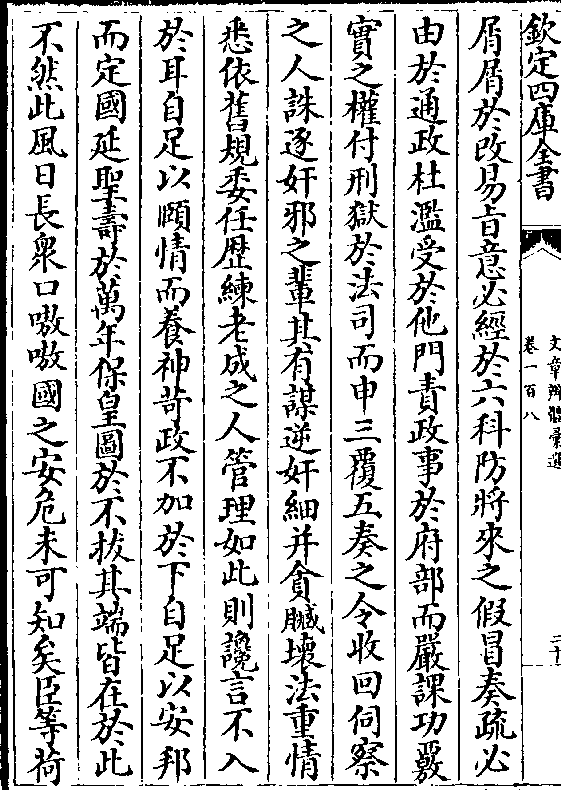 欽定四庫全書
文章辨體彙選
卷一百八
屑屑於改易旨意必經於六科防將來之假冒奏疏必
由於通政杜濫受於他門責政事於府部而嚴課功覈
實之權付刑獄於法司而申三覆五奏之令收回伺察
之人誅逐奸邪之輩其有謀逆奸細并貪贓壞法重情
悉依舊規委任歴練老成之人管理如此則讒言不入
於耳自足以頤情而養神苛政不加於下自足以安邦
而定國延聖壽於萬年保皇圖於不拔其端皆在於此
不然此風日長衆口嗷嗷國之安危未可知矣臣等荷